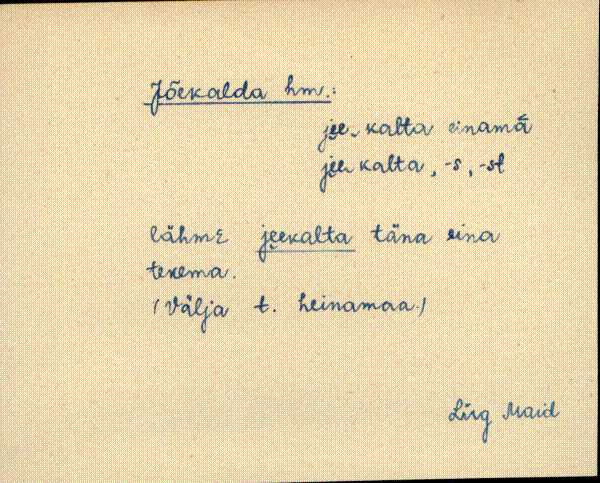 Jõekalda hm.:
jee̬kalta einamā̆
jee̬kalta, -s, -st
lähme jee̬kalta täna eina
tekema.
(Välja t. heinamaa.)
Maid